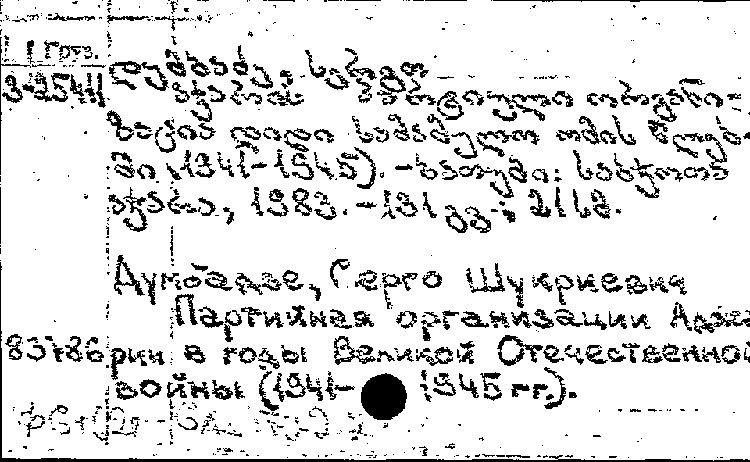 Груз.
3-25411 დუმბაძე, სერგო
აჭარის პარტიული ორგანი-
ზაცია დიდი სამამულო ომის წლებ-
ში (1941-1945). - ბათუმი: საბჭოთა
აჭარა, 1983. - 131 გვ.; 21 სმ.
Думбадзе, Серго Шукриевич
Партийная организации Аджа
83-86 рии в годы Великой Отечественной
войны (1941- 1945 гг.).